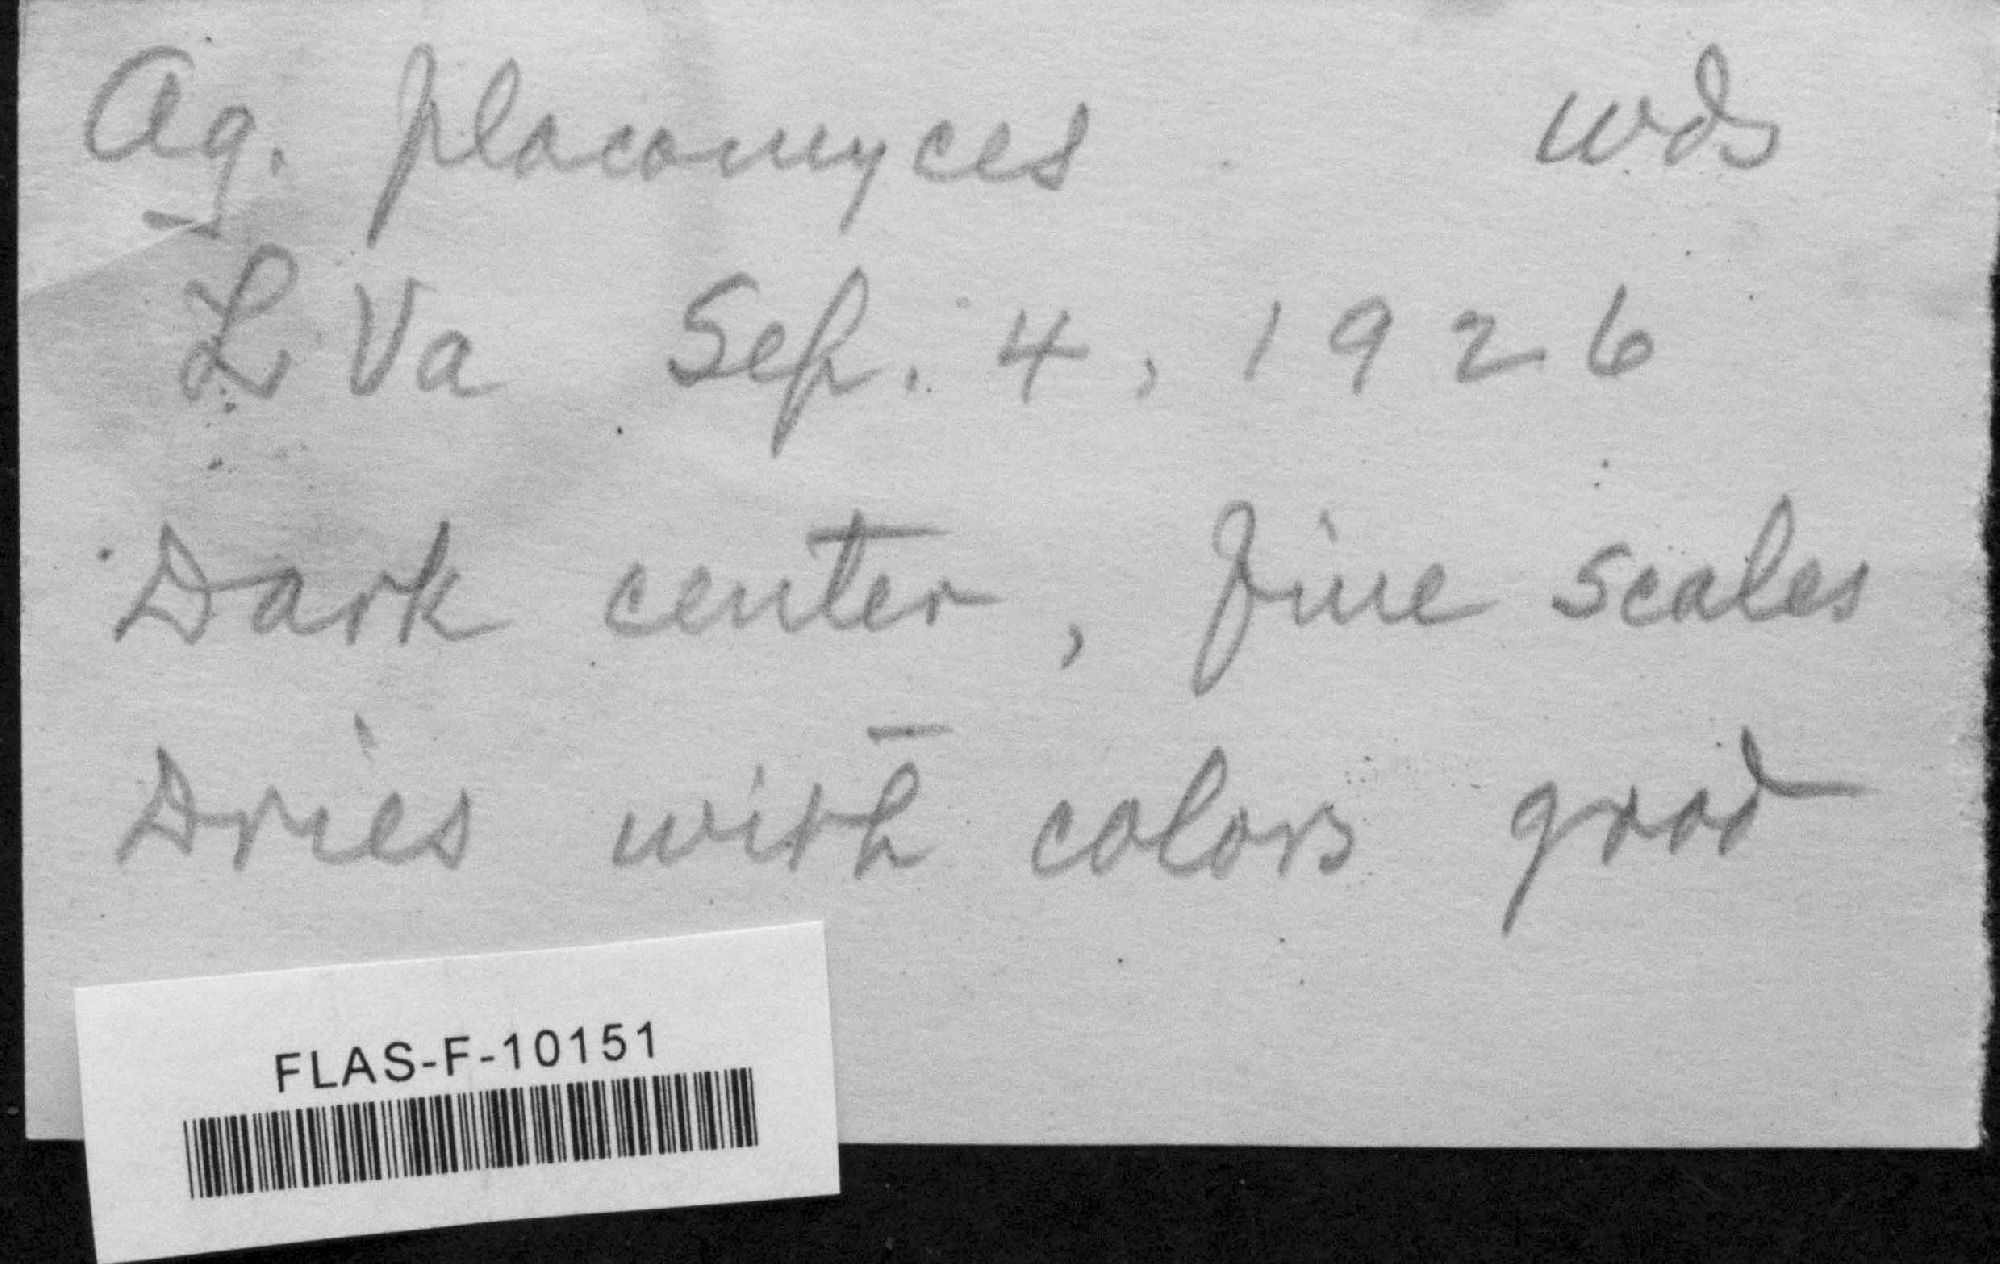 Ag. placomyces wds
L Va Sep. 4, 1926
Dark center, fine scales
Dries with colors good
FLAS-F-10151